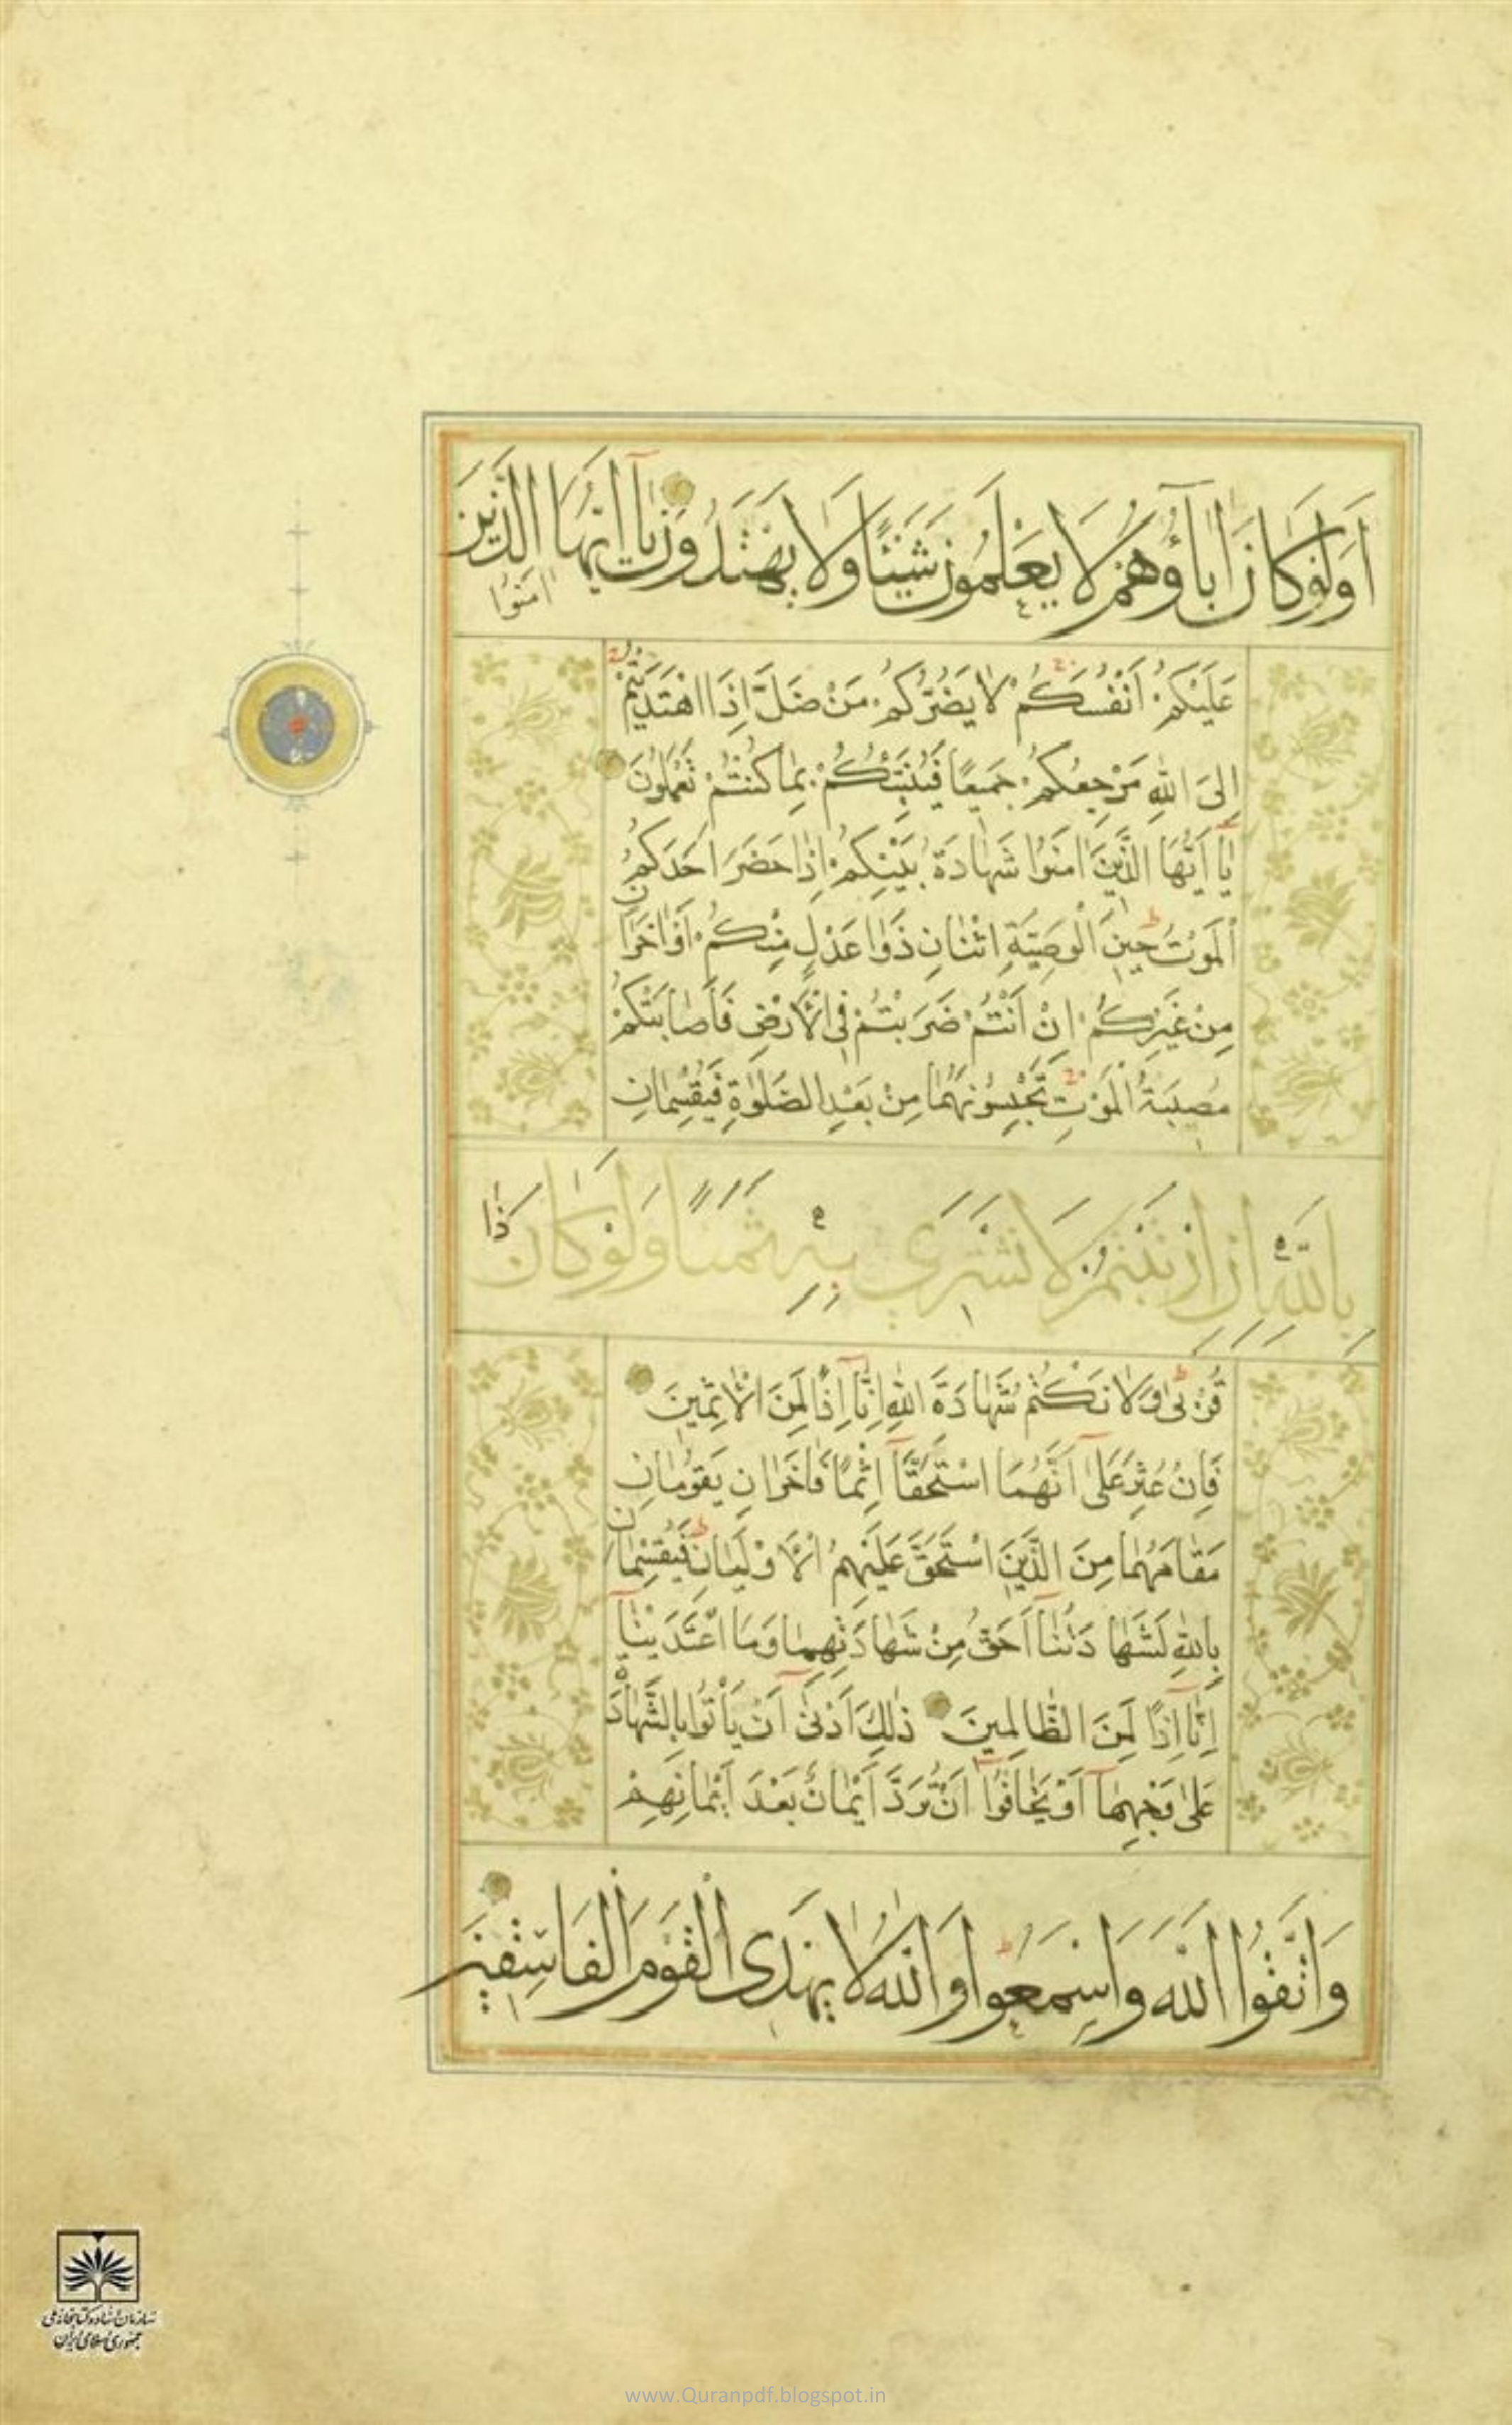 اَوَلَوْ كَانَ اٰبَاۤؤُهُمْ لَا يَعْلَمُونَ شَيْئًا وَلَا يَهْتَدُونَ يَاۤ اَيُّهَا الَّذِينَ
اٰمَنُوا
عَلَيْكُمْ اَنْفُسَكُمْ لَا يَضُرُّكُمْ مَنْ ضَلَّ اِذَا اهْتَدَيْتُمْ
اِلَى اللّٰهِ مَرْجِعُكُمْ جَمِيعًا فَيُنَبِّئُكُمْ بِمَا كُنْتُمْ تَعْمَلُونَ
يَاۤ اَيُّهَا الَّذِينَ اٰمَنُوا شَهَادَةُ بَيْنِكُمْ اِذَا حَضَرَ اَحَدَكُمُ
الْمَوْتُ حِينَ الْوَصِيَّةِ اثْنَانِ ذَوَا عَدْلٍ مِنْكُمْ اَوْ اٰخَرَانِ
مِنْ غَيْرِكُمْ اِنْ اَنْتُمْ ضَرَبْتُمْ فِي الْاَرْضِ فَاَصَابَتْكُمْ
مُصِيبَةُ الْمَوْتِ تَحْبِسُونَهُمَا مِنْ بَعْدِ الصَّلٰوةِ فَيُقْسِمَانِ
بِاللّٰهِ اِنِ ارْتَبْتُمْ لَا نَشْتَرِي بِهِ ثَمَنًا وَلَوْ كَانَ ذَا
قُرْبٰى وَلَا نَكْتُمُ شَهَادَةَ اللّٰهِ اِنَّاۤ اِذًا لَمِنَ الْاٰثِمِينَ
فَاِنْ عُثِرَ عَلٰۤى اَنَّهُمَا اسْتَحَقَّاۤ اِثْمًا فَاٰخَرَانِ يَقُومَانِ
مَقَامَهُمَا مِنَ الَّذِينَ اسْتَحَقَّ عَلَيْهِمُ الْاَوْلَيَانِ فَيُقْسِمَانِ
بِاللّٰهِ لَشَهَادَتُنَاۤ اَحَقُّ مِنْ شَهَادَتِهِمَا وَمَا اعْتَدَيْنَاۤ
اِنَّاۤ اِذًا لَمِنَ الظَّالِمِينَ ذٰلِكَ اَدْنٰۤى اَنْ يَأْتُوا بِالشَّهَادَةِ
عَلٰى وَجْهِهَاۤ اَوْ يَخَافُوۤا اَنْ تُرَدَّ اَيْمَانٌ بَعْدَ اَيْمَانِهِمْ
وَاتَّقُوا اللّٰهَ وَاسْمَعُوا وَاللّٰهُ لَا يَهْدِي الْقَوْمَ الْفَاسِقِينَ
سازمان اسناد و کتابخانه ملی
جمهوری اسلامی ایران
www.Quranpdf.blogspot.in